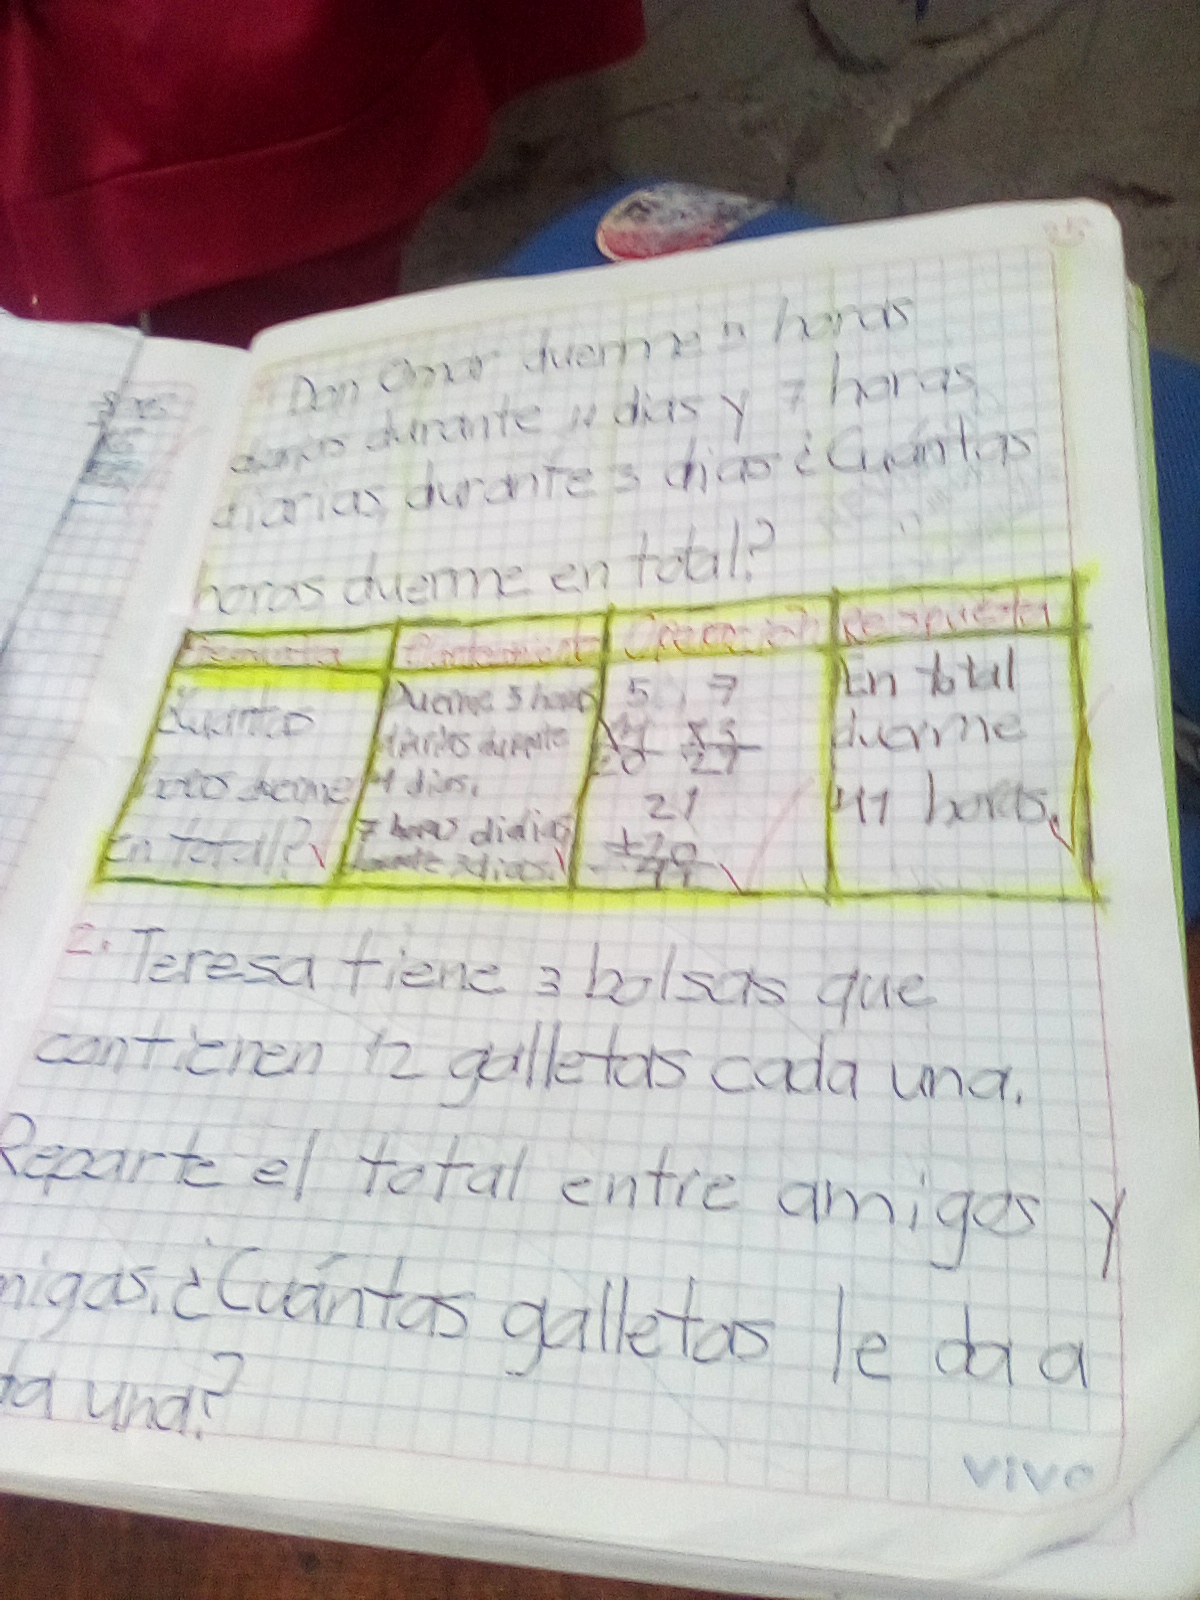 Don Omar duerme 5 horas
diarias durante 4 dias y 7 horas
diarias durante 3 dias ¿Cuántas
horas duerme en total?
Planteamiento Operación Respuesta
Cuantas
horas duerme
en total?
Duerme 5 horas
diarias durante
4 dias.
7 horas diarias
durante 3 dias.
5 7
x4 x3
20 21
21
+20
41
En total
duerme
41 horas.
2. Teresa tiene 3 bolsas que
contienen 12 galletas cada una.
Reparte el total entre amigos y
migas. ¿Cuántas galletas le da a
da una?
vivo